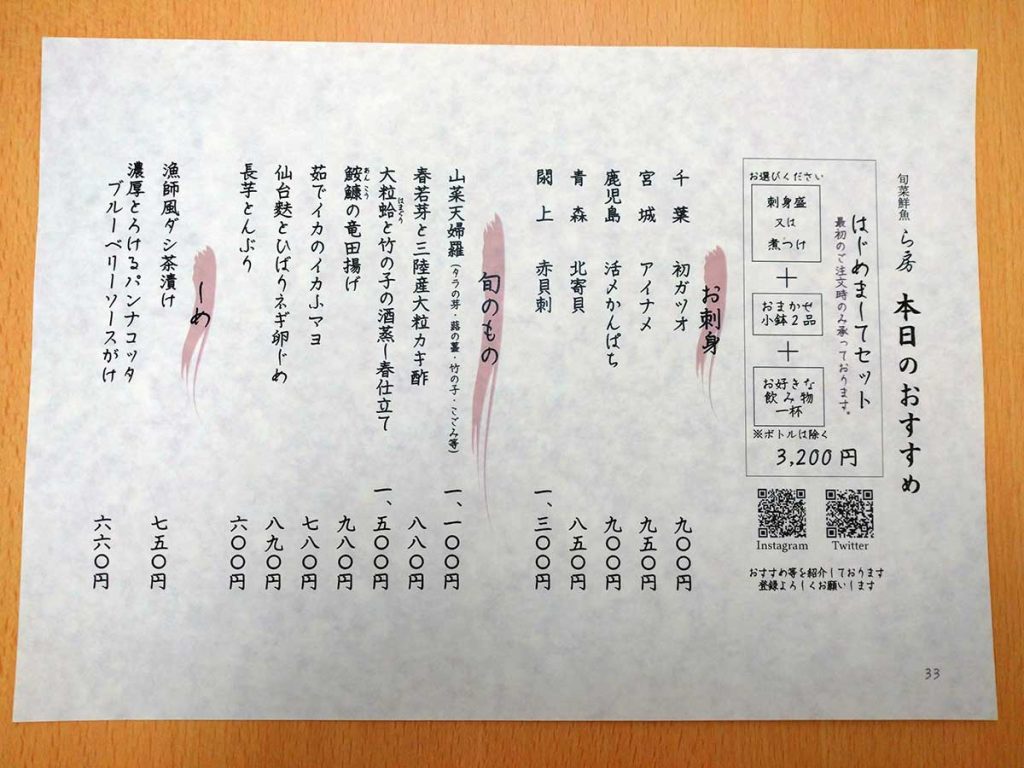 旬菜鮮魚 ら房 本日のおすすめ
はじめましてセット
最初のご注文時のみ承っております。
お選びください
刺身盛
又は
煮つけ
＋
おまかせ
小鉢2品
＋
お好きな
飲み物
一杯
※ボトルは除く
3,200円
Instagram
Twitter
おすすめ等を紹介しております
登録よろしくお願いします
お刺身
千葉 初ガツオ 九〇〇円
宮城 アイナメ 九五〇円
鹿児島 活〆かんぱち 九〇〇円
青森 北寄貝 八五〇円
閖上 赤貝刺 一、三〇〇円
旬のもの
山菜天婦羅（タラの芽・蕗の薹・竹の子・こごみ等） 一、一〇〇円
春若芽と三陸産大粒カキ酢 八八〇円
大粒蛤と竹の子の酒蒸し春仕立て 一、五〇〇円
はまぐり
鮟鱇の竜田揚げ 九八〇円
あんこう
茹でイカのイカふマヨ 七八〇円
仙台麩とひばりネギ卵じめ 八九〇円
長芋とんぶり 六〇〇円
しめ
漁師風ダシ茶漬け 七五〇円
濃厚とろけるパンナコッタ
ブルーベリーソースがけ 六六〇円
33